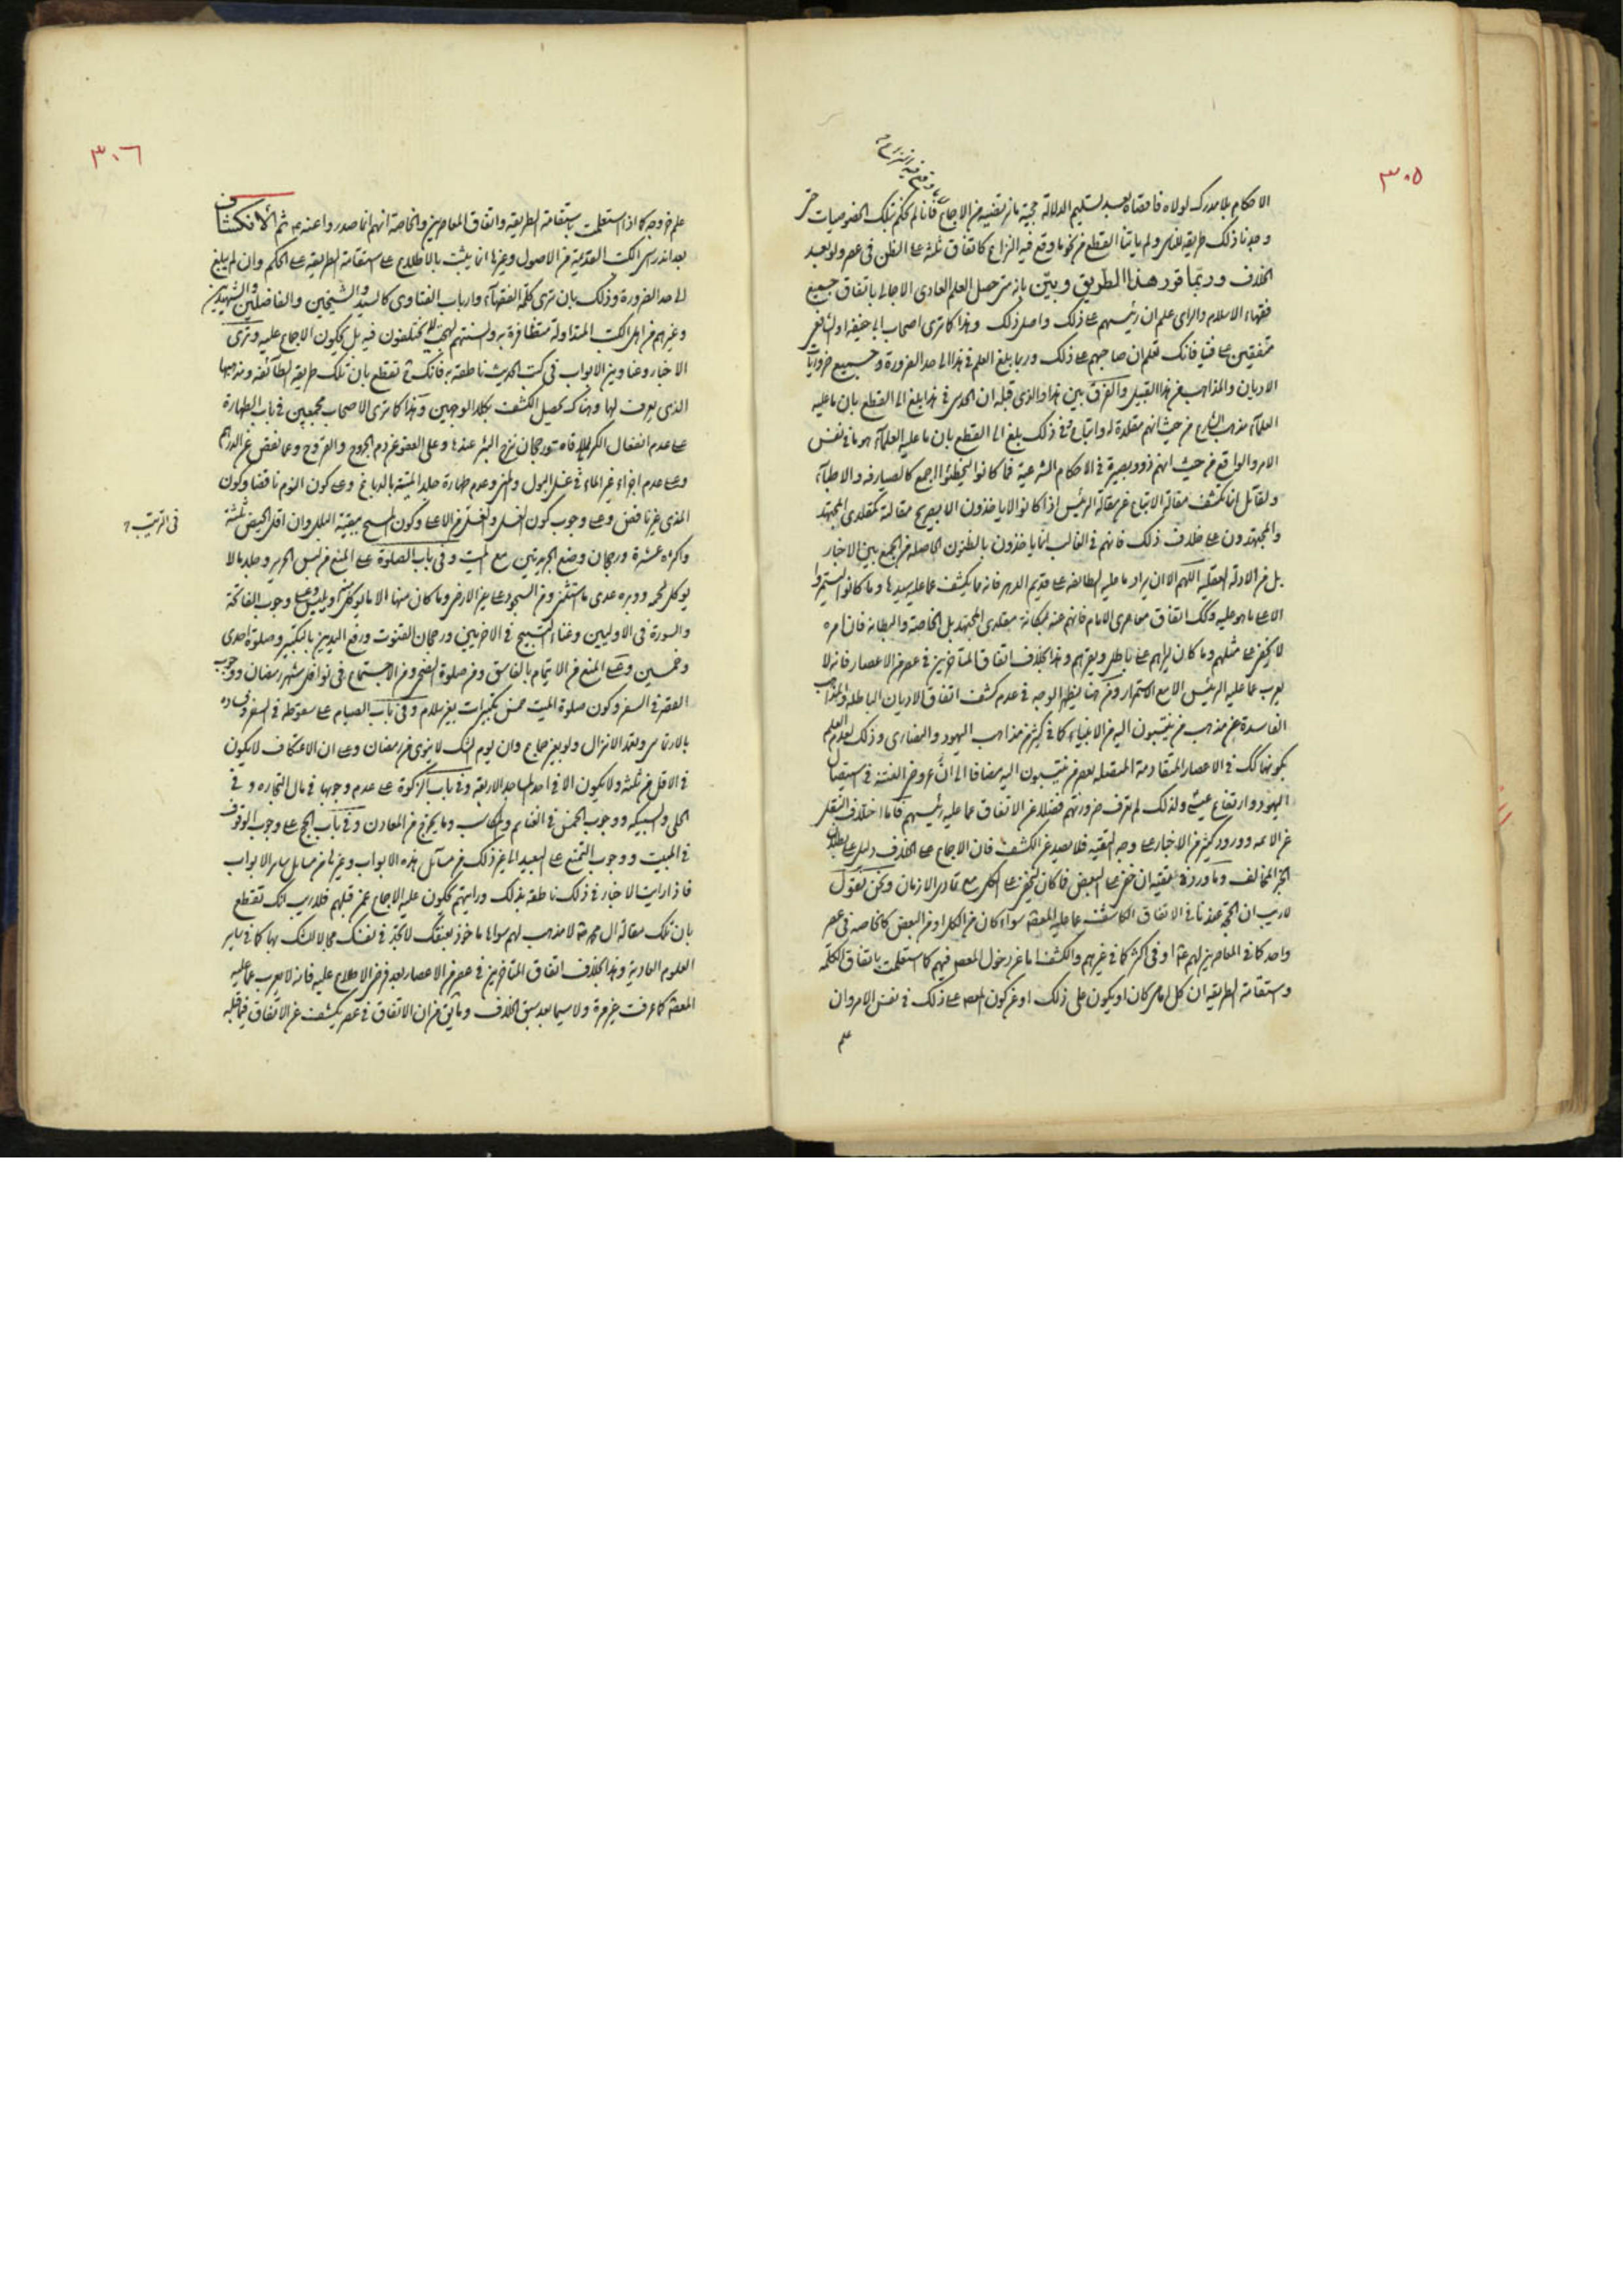 ٣٠٥
الاحكام بلا مدرك لولاه فاقصاه بعد تسليم الدلالة حجية ما تقتضيه من الاجماع فانا لم نحكم بتلك الخصوصيات حتى
وجدنا ذلك طريقة للناس ولم ياتنا القطع من نحو ما وقع فيه النزاع كاتفاق ثلثة على الظن فى عصر ولو بعد
الخلاف وربما قرر هذا الطريق وبين بانه متى حصل العلم العادى الاجمالى باتفاق جميع
فقهاء الاسلام والراى علم ان رئيسهم على ذلك واصل ذلك وهذا كما ترى اصحاب ابى حنيفة او الشافعى
متفقين على فتيا فانك تعلم ان صاحبهم على ذلك وربما بلغ العلم فى هذا الى حد الضرورة وجميع ضروريات
الاديان والمذاهب من هذا القبيل والفرق بين هذا والذى قبله ان الحدس فى هذا بلغ الى القطع بان ما عليه
العلماء مذهب الشارع من حيث انهم مقلدة له واتباع وفى ذلك بلغ الى القطع بان ما عليه العلماء هو ما فى نفس
الامر والواقع من حيث انهم ذوو بصيرة فى الاحكام الشرعية فما كانوا ليخطئوا اجمع كالصيارفه والاطباء
ولقائل انما تكشف مقالة الاتباع عن مقالة الرئيس اذا كانوا لا ياخذون الا بصريح مقالته كمقلدى المجتهد
والمجتهدون على خلاف ذلك فانهم فى الغالب انما ياخذون بالظنون الحاصله من الجمع بين الاخبار
بل من الادلة العقلية اللهم الا ان يراد ما عليه الطائفة على قديم الدهر فانه مما يكشف عما عليه سيدها وما كانوا ليستمروا
الا على ما هو عليه وكذلك اتفاق معاصرى الامام فانهم عنه بمكانة مقلدى المجتهد بل الخاصة والبطانة فان امره
لا يخفى على مثلهم وما كان ليراهم على باطل ويقرهم وهذا بخلاف اتفاق المتاخرين فى عصر من الاعصار فانه لا
يعرب عما عليه الرئيس الا مع الاستمرار ومن هنا يظهر الوجه فى عدم كشف اتفاق الاديان الباطلة والمذاهب
الفاسدة عن مذهب من ينتسبون اليه من الانبياء كما فى كثير من مذاهب اليهود والنصارى وذلك لعدم العلم
بكونها كذلك فى الاعصار المتقادمة المتصله بعصر من ينتسبون اليه مضافا الى ما عرض من الفتنة فى استيصال
اليهود وارتفاع عيسى ولذلك لم نعرف ضرورتهم فضلا عن الاتفاق عما عليه رئيسهم فاما اختلاف النقل
عن الائمه وورود كثير من الاخبار على وجه التقيه فلا يصد عن الكشف فان الاجماع على الخلاف دليل على بطلان
الخبر المخالف وما ورد فى التقيه ان خفى على البعض فما كان ليخفى على الكل مع تمادى الازمان ونحن نقول
لا ريب ان الحجة عندنا فى الاتفاق الكاشف عما عليه المعصوم سواء كان من الكل او من البعض كالخاصه فى عصر
واحد كما فى المعاصرين لهم او فى اكثر كما فى غيرهم والكشف اما عن دخول المعصوم فيهم كما استعلمت باتفاق الكلمة
واستقامة الطريقة ان كل امامى كان او يكون على ذلك او عن كون المعصوم على ذلك فى نفس الامر وان
علم
٣٠٦
علم خروجه كما اذا استعلمت باستقامة الطريقه واتفاق المعاصرين والخاصة انهم انما صدروا عنه ثم الانكشاف
بعد اندراس الكتب القديمة من الاصول وغيرها انما يثبت بالاطلاع على استقامة الطريقه على الحكم وان لم يبلغ
الى حد الضرورة وذلك بان ترى كلمة الفقهاء وارباب الفتاوى كالسيد والشيخين والفاضلين والشهيدين
وغيرهم من اهل الكتب المتداولة متظافرة به والسنتهم لهجة لا يختلفون فيه بل يحكون الاجماع عليه وترى
الاخبار وعناوين الابواب فى كتب الحديث ناطقة به فانك تقطع بان تلك طريقة الطائفه ومذهبها
الذى يعرف لها وهناك تحصيل الكشف بكلا الوجهين وهذا كما ترى الاصحاب مجمعين فى باب الطهارة
على عدم انفعال الكر بالملاقاة ورجحان نزح البئر عندها وعلى العفو عن دم الجروح والقروح وعما نقص عن الدرهم
وعلى عدم اجزاء غير الماء فى غسل البول والمنى وعدم طهارة جلد الميتة بالدباغ وعلى كون النوم ناقضا وكون
المذى غير ناقض وعلى وجوب كون الغسل من الاعلى وكون المسح ببقية البلل وان اقل الحيض ثلثة
فى الترتيب
واكثره عشرة ورجحان وضع الجريدتين مع الميت وفى باب الصلوة على المنع من لبس الحرير وجلد ما لا
يوكل لحمه ووبره عدى ما استثنى ومن السجود على غير الارض وما كان منها الا ما يوكل ويلبس وعلى وجوب الفاتحة
والسورة فى الاوليين وغناء التسبيح فى الاخريين ورجحان القنوت ورفع اليدين بالتكبير وصلوة احدى
وخمسين وعلى المنع من الايتمام بالفاسق ومن صلوة الضحى ومن الاجتماع فى نوافل شهر رمضان ووجوب
القصر فى السفر وكون صلوة الميت خمس تكبيرات بغير سلام وفى باب الصيام على سقوطه فى السفر وفساده
بالارتماس وتعمد الانزال ولو بغير جماع وان يوم الشك لا ينوى من رمضان وعلى ان الاعتكاف لا يكون
فى الاقل من ثلثة ولا يكون الا فى احد المساجد الاربعة وفى باب الزكوة على عدم وجوبها فى مال التجاره و فى
الحلى والسبيكه ووجوب الخمس فى الغنائم والمكاسب وما يخرج من المعادن وفى باب الحج على وجوب الوقوف
فى المبيت ووجوب التمتع على البعيد الى غير ذلك من مسائل هذه الابواب وغيرها من مسائل ساير الابواب
فاذا رايت الاخبار فى ذلك ناطقة بذلك ورايتهم يحكون عليه الاجماع عمن قبلهم فلا ريب انك تقطع
بان تلك مقالة ال محمد لا مذهب لهم سواها ماخوذ بعنقك لا تجد فى نفسك مجالا للشك بها كما فى ساير
العلوم العادية وهذا بخلاف اتفاق المتاخرين فى عصر من الاعصار بعد فرض الاطلاع عليه فانه لا يعرب عما عليه
المعصوم كما عرفت غير مرة ولا سيما بعد سبق الخلاف وما يق من ان الاتفاق فى عصر يكشف عن الاتفاق فيما قبله